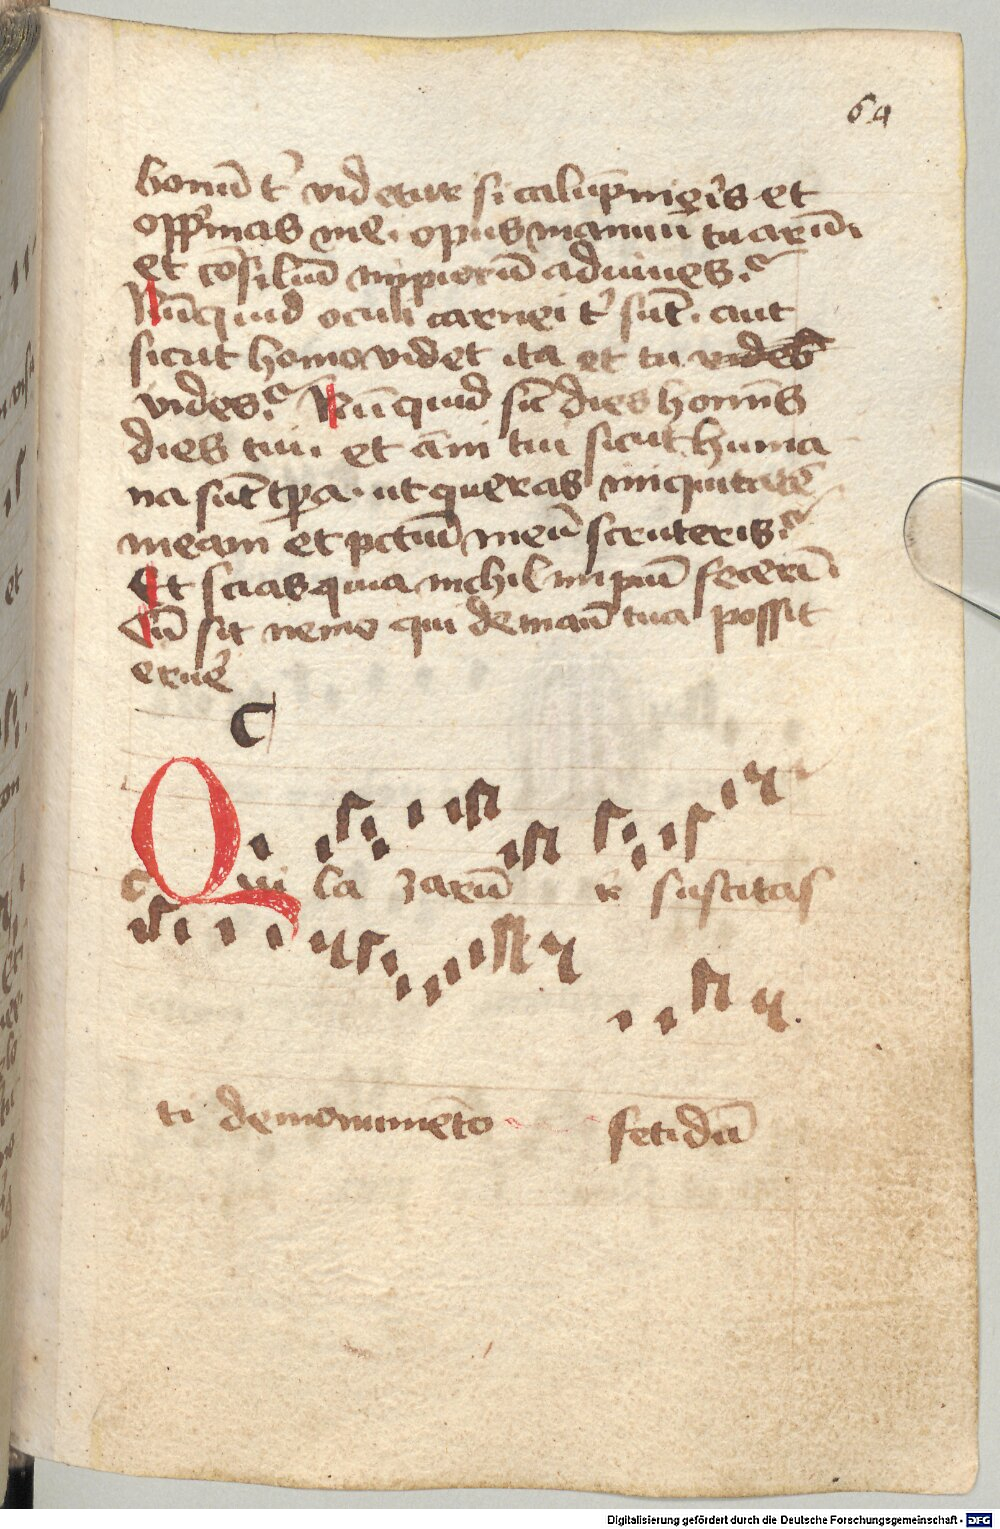 64
bonū t͛ videtur si calūpnieris et
opp͛mas me. opus manuū tuarū.
et cōsiliū impiorū adiuues?
Nūquid oculi carnei t͛ sūt. aut
sicut homo videt ita et tu videb͛
vides? Nūquid sīt dies homīs
dies tui. et āni tui sicut huma
na sūt tpa. ut queras iniquitatē
meam et pctūm meū scruteris?
Et scias quia nichil impiū fecerī.
Cū sit nemo qui de manū tua possit
eruē
C
Qui la zarū r suscitas
ti de monumēto fetidū
Digitalisierung gefördert durch die Deutsche Forschungsgemeinschaft - DFG